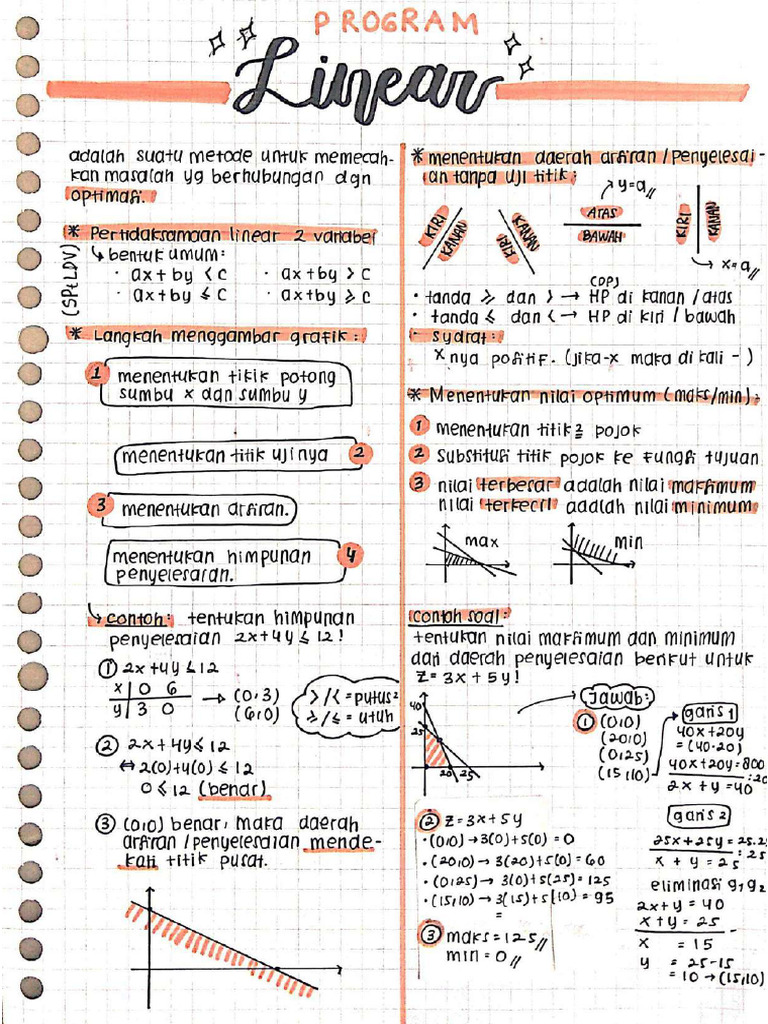 PROGRAM
Linear
adalah suatu metode untuk memecah-
kan masalah yg berhubungan dgn
optimasi.
* Pertidaksamaan linear 2 variabel
(SPtLDV)
↳ bentuk umum:
· ax + by < c · ax + by > c
· ax + by ≤ c · ax + by ≥ c
* Langkah menggambar grafik :
1 menentukan titik potong
sumbu x dan sumbu y
menentukan titik ujinya 2
3 menentukan arsiran.
menentukan himpunan 4
penyelesaian.
↳ contoh: tentukan himpunan
penyelesaian 2x+4y ≤ 12!
① 2x+4y ≤ 12
x | 0 6
y | 3 0
→ (0,3)
(6,0)
>/< = putus²
≥/≤ = utuh
② 2x + 4y ≤ 12
↔ 2(0)+4(0) ≤ 12
0 ≤ 12 (benar)
③ (0,0) benar, maka daerah
arsiran/penyelesaian mende-
kati titik pusat.
* menentukan daerah arsiran/penyelesai-
an tanpa uji titik:
KIRI KANAN
KIRI KANAN
y=a
ATAS
BAWAH
KIRI KANAN
x=a
(DP)
· tanda ≥ dan > → HP di kanan/atas
· tanda ≤ dan < → HP di kiri/bawah
- syarat:
x nya positif. (jika -x maka di kali -)
* Menentukan nilai optimum (maks/min):
1 menentukan titik² pojok
2 Substitusi titik pojok ke fungsi tujuan
3 nilai terbesar adalah nilai maksimum
nilai terkecil adalah nilai minimum
max
min
contoh soal:
tentukan nilai maksimum dan minimum
dari daerah penyelesaian berikut untuk
z = 3x + 5y!
40
25
20 25
Jawab:
① (0,0)
(20,0)
(0,25)
(15,10)
garis 1
40x+20y
= (40·20)
40x+20y=800
:20
2x + y = 40
② z = 3x + 5y
· (0,0) → 3(0)+5(0) = 0
· (20,0) → 3(20)+5(0) = 60
· (0,25) → 3(0)+5(25) = 125
· (15,10) → 3(15)+5(10) = 95
=
③ maks = 125
min = 0
garis 2
25x+25y = 25.25
:25
x + y = 25
eliminasi g₁g₂
2x+y = 40
x+y = 25
-
x = 15
y = 25-15
= 10 → (15,10)